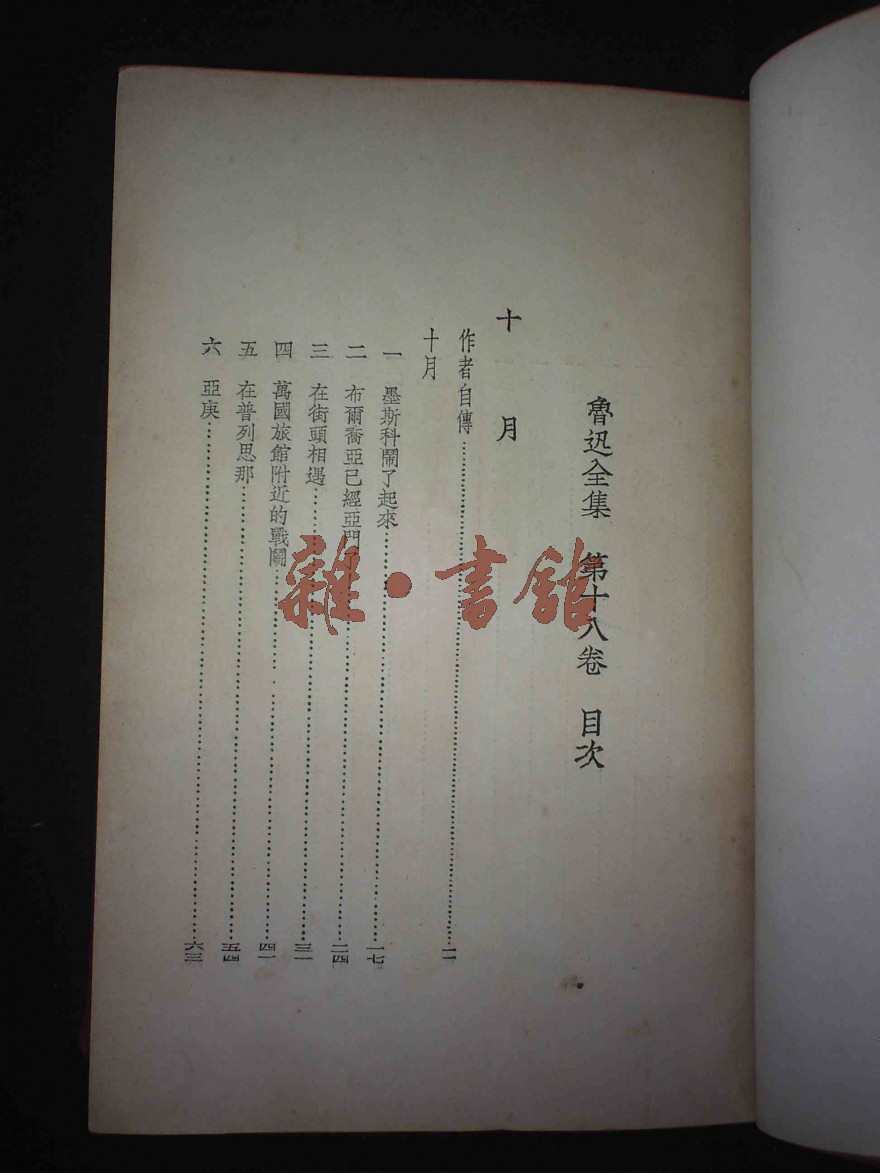 魯迅全集 第十八卷 目次
十月
作者自傳……一一
十月
一 墨斯科鬧了起來……一七
二 布爾喬亞已經亞門……二四
三 在街頭相遇……三一
四 萬國旅館附近的戰鬭……四一
五 在普列思那……五四
六 亞庚……六三
雜·書館